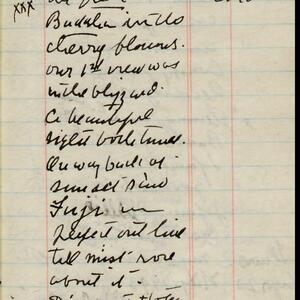 xxx
Buddha in its
cherry blooms.
our 1st view was
in the blizzard.
A beautiful
sight both times.
On way back at
sunset saw
Fuji in
perfect out line
till mist rose
about it.